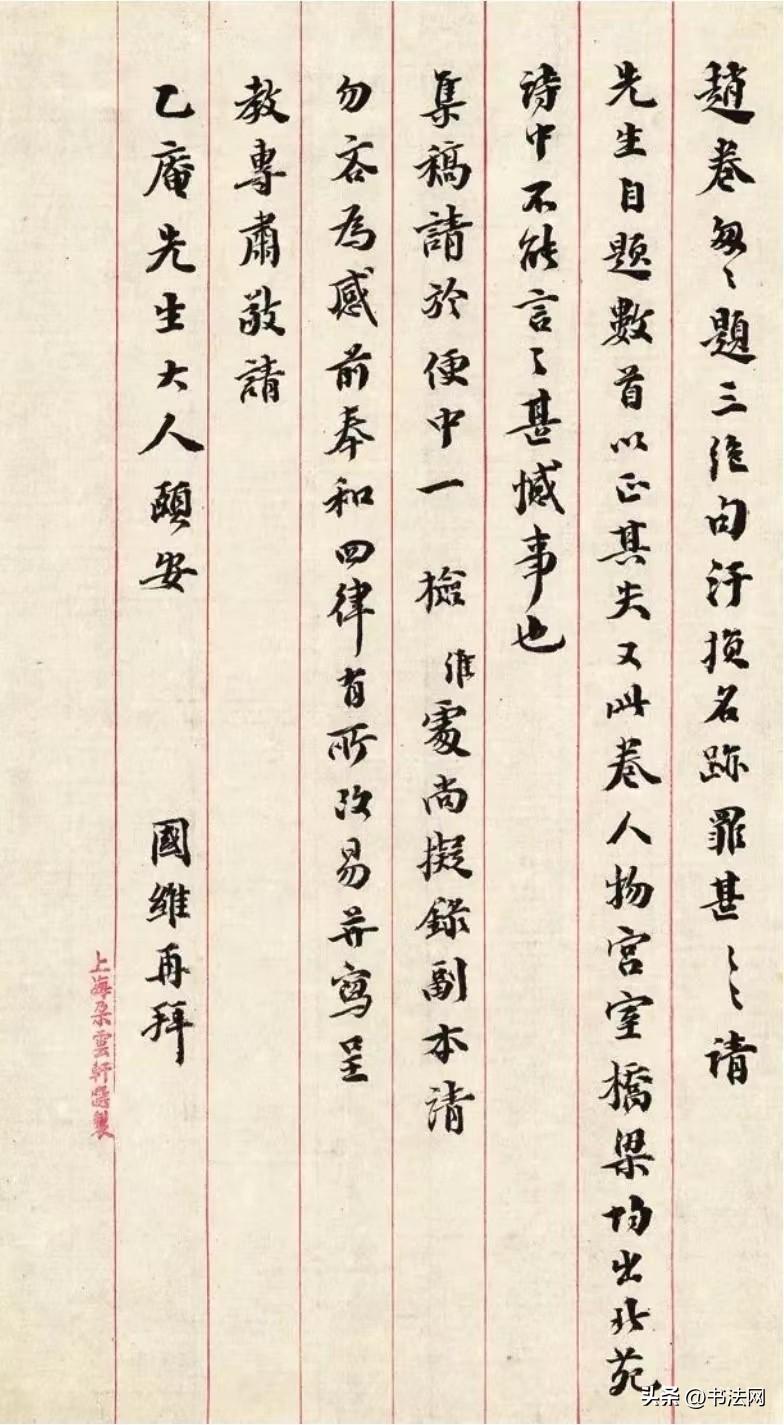 趙卷匆〻題三絕句汙損名跡罪甚〻〻請
先生自題數首以正其失又此卷人物宮室橋梁均出北苑
詩中不能言〻甚憾事也
集稿請於便中一 檢 維處尚擬錄副本請
勿吝為感前奉和四律有所改易并寫呈
教專肅敬請
乙庵先生大人頤安 國維再拜
上海朵雲軒製
头条 @书法网